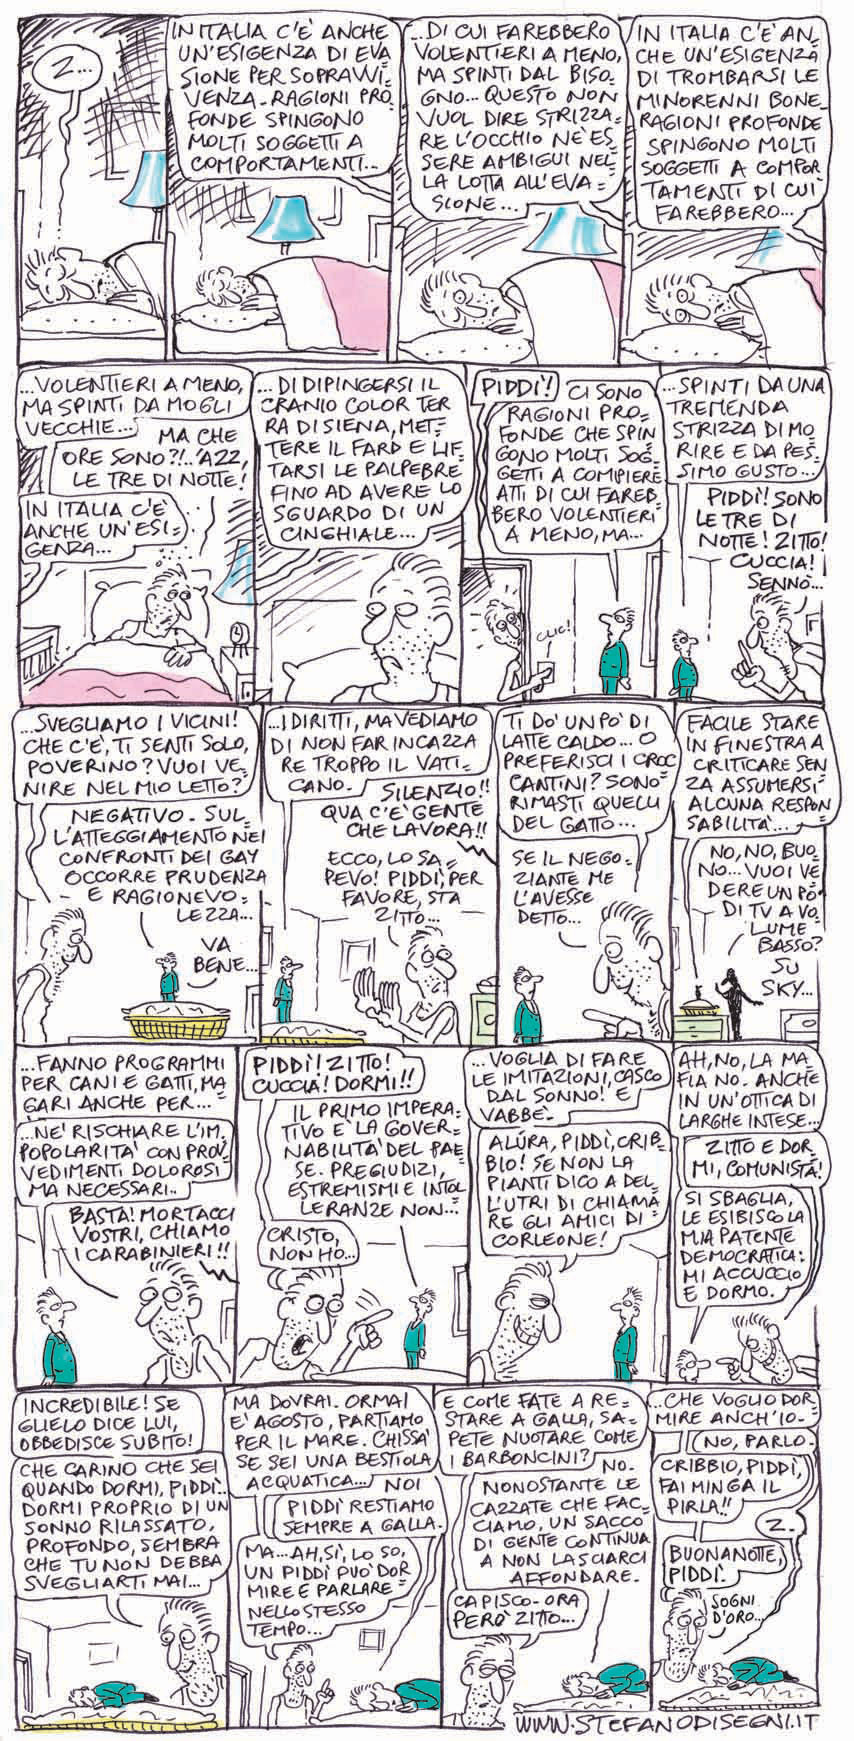 Z...
IN ITALIA C'È ANCHE
UN'ESIGENZA DI EVA
SIONE PER SOPRAVVI-
VENZA. RAGIONI PRO
FONDE SPINGONO
MOLTI SOGGETTI A
COMPORTAMENTI...
...DI CUI FAREBBERO
VOLENTIERI A MENO,
MA SPINTI DAL BISO-
GNO... QUESTO NON
VUOL DIRE STRIZZA-
RE L'OCCHIO NÈ ES-
SERE AMBIGUI NEL-
LA LOTTA ALL'EVA-
SIONE...
IN ITALIA C'È AN-
CHE UN'ESIGENZA
DI TROMBARSI LE
MINORENNI BONE.
RAGIONI PROFONDE
SPINGONO MOLTI
SOGGETTI A COMPOR
TAMENTI DI CUI
FAREBBERO...
...VOLENTIERI A MENO,
MA SPINTI DA MOGLI
VECCHIE...
MA CHE
ORE SONO?!.. 'AZZ,
LE TRE DI NOTTE!
IN ITALIA C'È
ANCHE UN'ESI-
GENZA...
...DI DIPINGERSI IL
CRANIO COLOR TER
RA DI SIENA, MET-
TERE IL FARD E LIF-
TARSI LE PALPEBRE
FINO AD AVERE LO
SGUARDO DI UN
CINGHIALE...
PIDDÌ!
CI SONO
RAGIONI PRO-
FONDE CHE SPIN
GONO MOLTI SOG-
GETTI A COMPIERE
ATTI DI CUI FAREB-
BERO VOLENTIERI
A MENO, MA...
CLIC!
...SPINTI DA UNA
TREMENDA
STRIZZA DI MO-
RIRE E DA PES-
SIMO GUSTO...
PIDDÌ! SONO
LE TRE DI
NOTTE! ZITTO!
CUCCIA!
SENNÒ...
...SVEGLIAMO I VICINI!
CHE C'È, TI SENTI SOLO,
POVERINO? VUOI VE-
NIRE NEL MIO LETTO?
NEGATIVO. SUL-
L'ATTEGGIAMENTO NEI
CONFRONTI DEI GAY
OCCORRE PRUDENZA
E RAGIONEVO-
LEZZA...
VA
BENE...
...I DIRITTI, MA VEDIAMO
DI NON FAR INCAZZA
RE TROPPO IL VATI-
CANO.
SILENZIO!!
QUA C'È GENTE
CHE LAVORA!!
ECCO, LO SA-
PEVO! PIDDÌ, PER
FAVORE, STA
ZITTO...
TI DO' UN PO' DI
LATTE CALDO... O
PREFERISCI I CROC
CANTINI? SONO
RIMASTI QUELLI
DEL GATTO...
SE IL NEGO-
ZIANTE ME
L'AVESSE
DETTO...
FACILE STARE
IN FINESTRA A
CRITICARE SEN
ZA ASSUMERSI
ALCUNA RESPON
SABILITÀ...
NO, NO, BUO-
NO... VUOI VE
DERE UN PÒ
DI TV A VO-
LUME
BASSO?
SU
SKY...
...FANNO PROGRAMMI
PER CANI E GATTI, MA
GARI ANCHE PER...
...NE' RISCHIARE L'IM-
POPOLARITÀ CON PROV-
VEDIMENTI DOLOROSI
MA NECESSARI..
BASTA! MORTACCI
VOSTRI, CHIAMO
I CARABINIERI!!
PIDDÌ! ZITTO!
CUCCIA! DORMI!!
IL PRIMO IMPERA-
TIVO E' LA GOVER-
NABILITÀ DEL PAE
SE. PREGIUDIZI,
ESTREMISMI E INTOL
LERANZE NON...
CRISTO,
NON HO...
...VOGLIA DI FARE
LE IMITAZIONI, CASCO
DAL SONNO! E
VABBÈ.
ALÚRA, PIDDÌ, CRIB-
BIO! SE NON LA
PIANTI DICO A DEL
L'UTRI DI CHIAMA
RE GLI AMICI DI
CORLEONE!
AH, NO, LA MA
FIA NO. ANCHE
IN UN'OTTICA DI
LARGHE INTESE...
ZITTO E DOR-
MI, COMUNISTA!
SI SBAGLIA,
LE ESIBISCO LA
MIA PATENTE
DEMOCRATICA:
MI ACCUCCIO
E DORMO.
INCREDIBILE! SE
GLIELO DICE LUI,
OBBEDISCE SUBITO!
CHE CARINO CHE SEI
QUANDO DORMI, PIDDÌ...
DORMI PROPRIO DI UN
SONNO RILASSATO,
PROFONDO, SEMBRA
CHE TU NON DEBBA
SVEGLIARTI MAI...
MA DOVRAI. ORMAI
E' AGOSTO, PARTIAMO
PER IL MARE. CHISSÀ
SE SEI UNA BESTIOLA
ACQUATICA...
NOI
PIDDÌ RESTIAMO
SEMPRE A GALLA.
MA... AH, SÌ, LO SO,
UN PIDDÌ PUÒ DOR
MIRE E PARLARE
NELLO STESSO
TEMPO...
E COME FATE A RE-
STARE A GALLA, SA-
PETE NUOTARE COME
I BARBONCINI?
NO.
NONOSTANTE LE
CAZZATE CHE FAC-
CIAMO, UN SACCO
DI GENTE CONTINUA
A NON LASCIARCI
AFFONDARE.
CAPISCO. ORA
PERÒ ZITTO...
...CHE VOGLIO DOR
MIRE ANCH'IO.
NO, PARLO.
CRIBBIO, PIDDÌ,
FAI MINGA IL
PIRLA!!
Z...
BUONANOTTE,
PIDDÌ.
SOGNI
D'ORO...
WWW.STEFANODISEGNI.IT